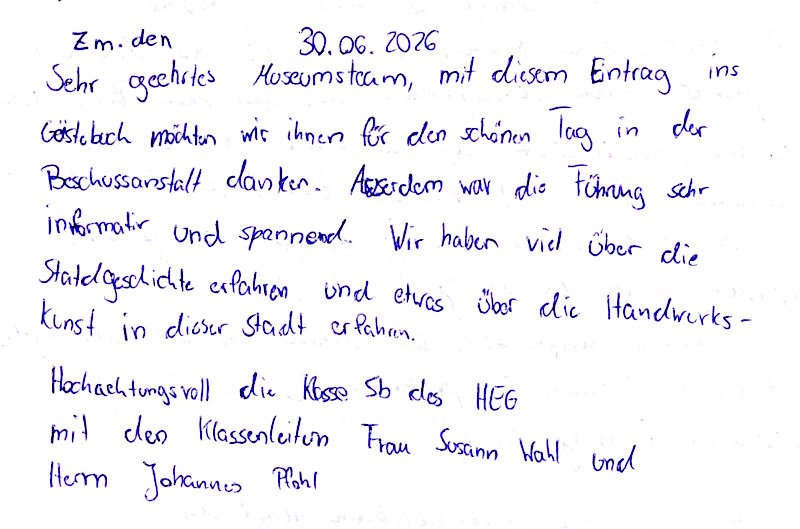 Z m. den 30.06.2026
Sehr geehrtes Museumsteam, mit diesem Eintrag ins
Gästebuch möchten wir ihnen für den schönen Tag in der
Beschussanstalt danken. Ausserdem war die Führung sehr
informativ und spannend. Wir haben viel über die
Statdgeschichte erfahren und etwas über die Handwerks-
kunst in dieser Stadt erfahren.
Hochachtungsvoll die Klasse 5b des HEG
mit den Klassenleitern Frau Susann Wahl und
Herrn Johannes Pfohl